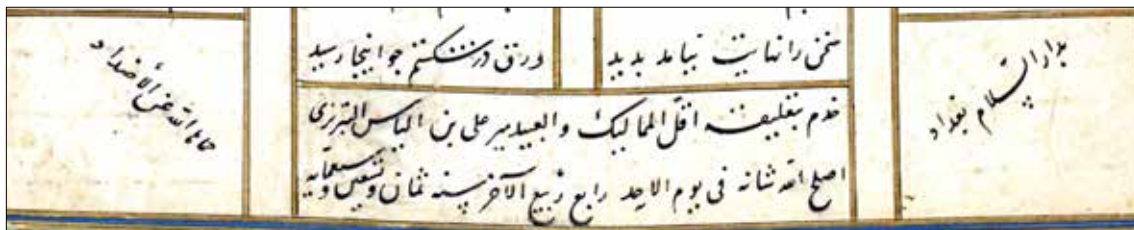 سخن را نهایت نیامد پدید
ورق درشکستم چو اینجا رسید
خدم بتعلیقه اقل الممالیک والعبید میر علی بن الیاس التبریزی
اصلح الله شانه فی یوم الاحد رابع ربیع الآخر سنه ثمان وتسعین وسبعمایه
بدار السلام بغداد
حماها الله عن الأضداد